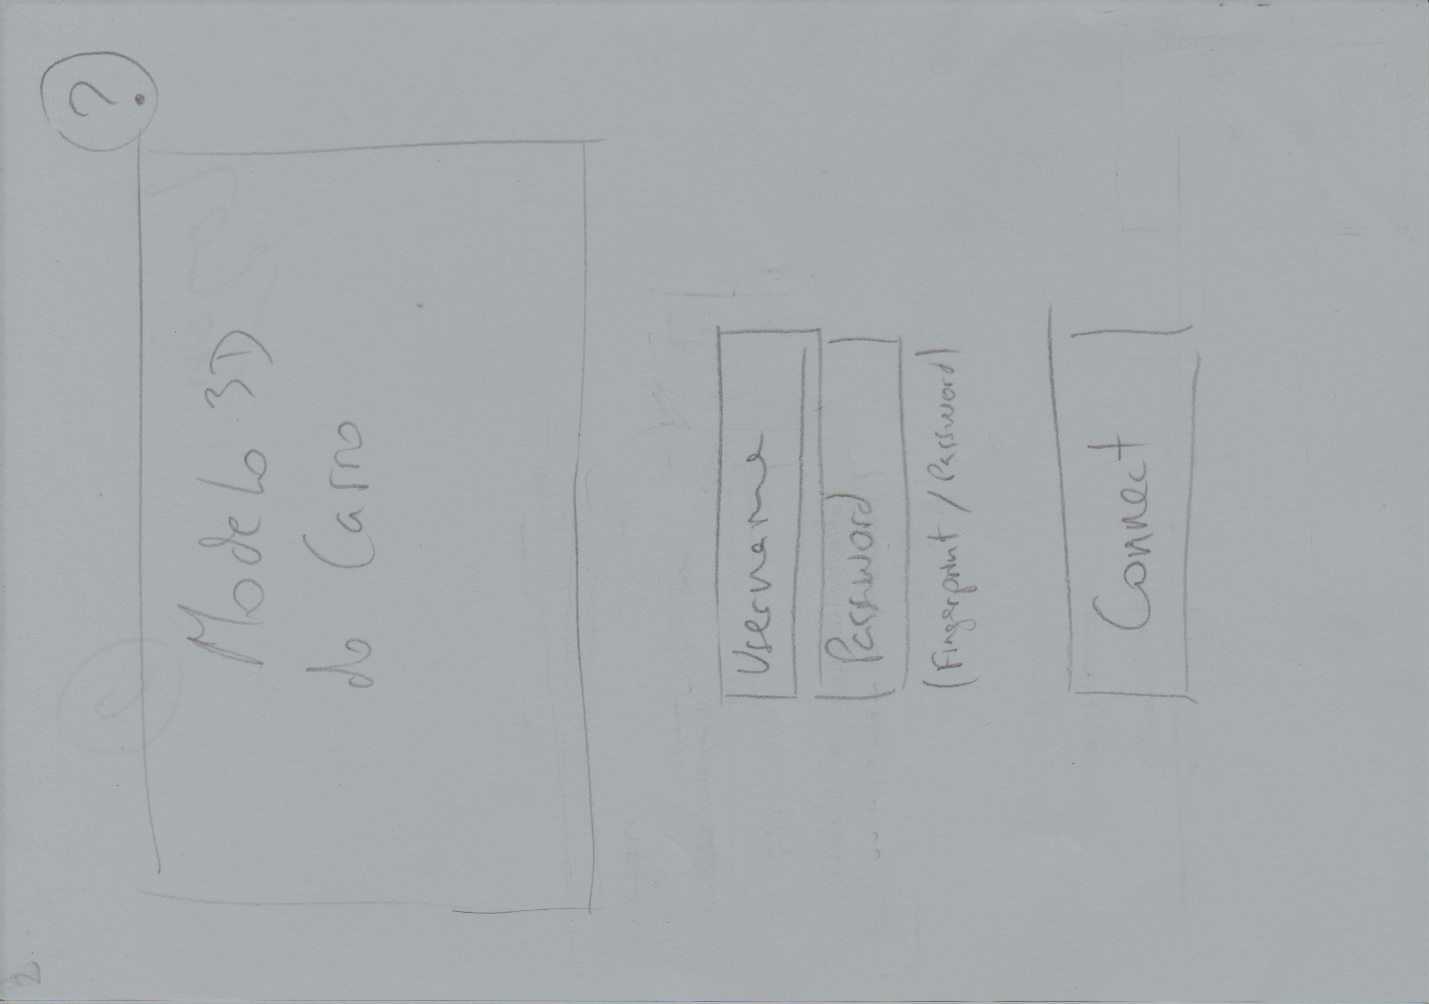 ?
Modelo 3D
do Carro
Username
Password
(Fingerprint / Password)
Connect
2